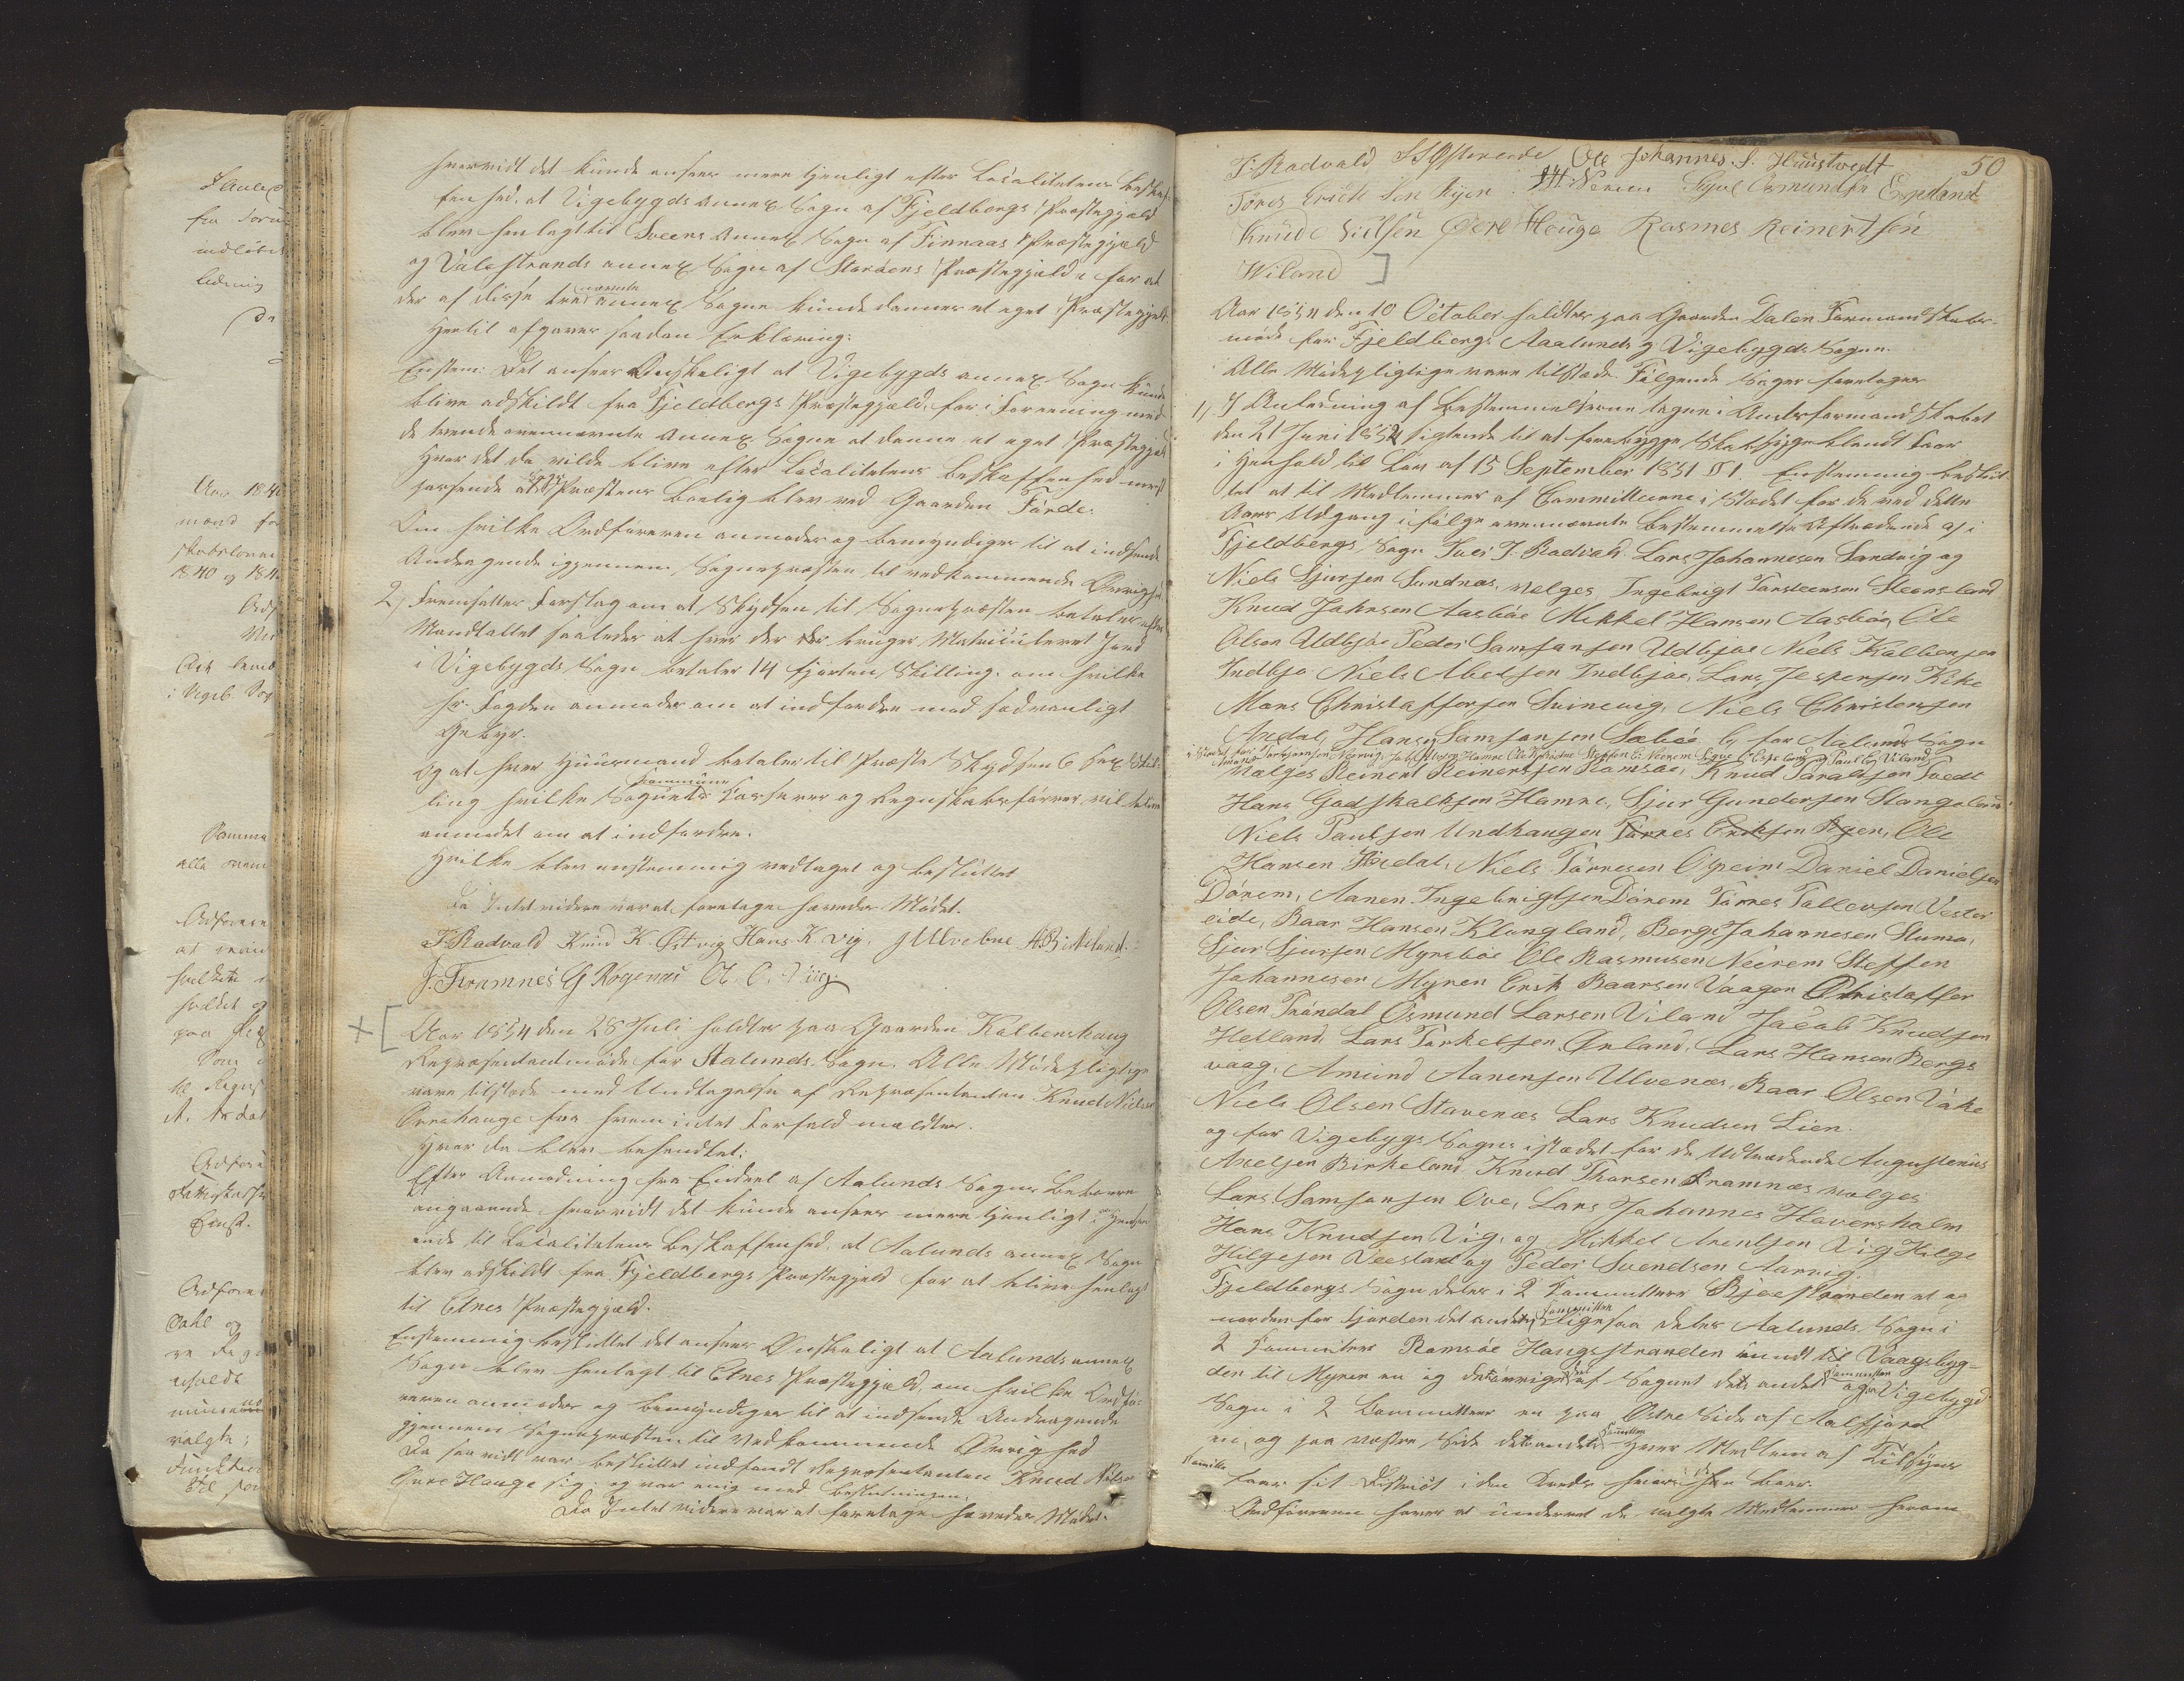 hvorvidt det kunde ansees mere tjenligt efter Localitetens Beskaf-
fenhed, at Vigebygds annex Sogn af Fjeldbergs Præstegjæld
blev henlagt til Sveens Annex Sogn af Finnaas Præstegjæld
og Valestrands annex Sogn af Stordøens Præstegjæld for at
der af disse tre nævnte annex Sogne kunde dannes et eget Præstegjæld.
Hertil afgaves saadan Erklæring:
Enstem: Det ansees Ønskeligt at Vigebygds annex Sogn kunde
blive adskildt fra Fjeldbergs Præstegjæld, for i Forening med
de tvende ovennævnte Annex Sogne at danne et eget Præstegjæld
hvor det da vilde blive efter Localitetens Beskaffenhed mest
passende at Præstens Boelig blev ved Gaarden Førde.
Om hvilke Ordføreren anmodes og bemyndiges til at indsende
Andragende igjennem Sognepræsten til vedkommende Øvrighed.
2/ Fremsattes Forslag om at Skydsen til Sognepræsten betales efter
Mandtallet saaledes at hver der bruger Matriculeret Jord
i Vigebygds Sogn betaler 14 fjorten Skilling. om hvilke
Hr. Fogden anmodes om at indfordre med sædvanligt
Gebyr.
Og at hver Huusmand betaler til Præste Skydsen 6 sex Skil-
ling hvilke Sognets Kommune Kasserer og Regnskabsfører vil blive
anmodet om at indfordre.
Hvilke blev enstemmig vedtaget og besluttet
Da Intet videre var at foretage hævedes Mødet.
T. Radvald Knud K. Østvig Hans K. Vig. J Ulvebne A. Birkeland.
J. Framnes G Rogenæs O. O. Vig
Aar 1854 den 28 Juli holdtes paa Gaarden Kalbenshaug
Repræsentantmøde for Aalunds Sogn. Alle Mødepligtige
vare tilstede med Undtagelse af Repræsentanten Knud Nielsen
Ørrehauge fra hvem intet Forfald meldtes.
Hvor da blev behandlet:
Efter Anmodning fra Endeel af Aalunds Sogns Beboere
angaaende, hvorvidt det kunde ansees mere tjenligt i Hense-
ende til Localitetens Beskaffenhed, at Aalunds annex Sogn
blev adskildt fra Fjeldbergs Præstegjæld for at blive henlagt
til Etnes Præstegjæld.
Enstemmig besluttet det ansees Ønskeligt at Aalunds annex
Sogn blev henlagt til Etnes Præstegjæld, om hvilke Ordfø-
reren anmodes og bemyndiges til at indsende Andragende
gjennem Sognepræsten til Vedkommende Øvrighed
Da saavidt var besluttet indfandt Repræsentanten Knud Nielsen
Øvre Hauge sig og var enig med Beslutningen.
Da Intet videre var at foretage hævedes Mødet.
50
T. Radvald S S Østereide Ole Johannes. S. Huustvedt
Tøres Erich Sen Rijen. Sjul Osmundsen Espeland
Knud Nielsen Øvre Houge Rasmes Reinertsen
Wiland
Aar 1854 den 10 October holdtes paa Gaarden Dalen Formandskabs-
møde for Fjeldbergs Aaalunds og Vigebygds Sogne.
Alle Mødepligtige vare tilstede. Følgende Sager foretoges
1/ I Anledning af Bestemmelserne tagne i Amtsformandskabet
den 21 Juni 1852 sigtende til at forebygge Skabsyge blandt Faar
i Henhold til Lov af 15 September 1851 § 1. Enstemmig beslut-
tet at til Medlemmer af Committeerne i Stedet for de ved dette
Aars Udgang i følge ovennævnte Bestemmelse Aftrædende af i
Fjeldbergs Sogn Iver J. Radvald Lars Johannesen Sandvig og
Niels Sjursen Sundnæs, velges Ingebrigt Torsteensen Steensland
Knud Johnsen Aasbøe Mikkel Hansen Aasbøe, Ole
Olsen Udbjoe Peder Samsonsen Udbjoe Niels Kalbensen
Indbjo Niels Abelsen Indbjoe, Lars Jespersen Kike
Mons Christophersen Svinevig, Niels Christensen
Andal, Hans Samsonsen Sæbøe og for Aalunds Sogn
Valges Reinert Reinertsen Ramsøe, Knud Taraldsen Tvedt
Hans Godskalksen Hamre, Sjur Gundersen Stangeland
Niels Paulsen Undhaugen Tørres Eriksen Ryen, Ole
Hansen Høiedal, Niels Tørresen Ospeim Daniel Danielsen
Dørem, Aanen Ingebrigtsen Dørem Tørres Tollevsen Vester
eide, Baar Hansen Klungland, Berge Johannesen Stumo,
Sjur Sjursen Myrebøe Ole Rasmusen Neerem Steffen
Johannesen Myren Erik Baarsen Vaagen Christoffer
Olsen Trøndal Osmund Larsen Viland Jacob Knudsen
Hetland, Lars Torkelsen Ørland, Lars Hansen Bergs
vaag, Amund Aanensen Ulvenæs, Baar Olsen Vake
Niels Olsen Stavenæs Lars Knudsen Lien.
og for Vigebygs Sogns istædet for de Udtrædende Augustinus
Axelsen Birkeland Knud Thorsen Framnæs valges
Lars Samsonsen Ove, Lars Johannes Haversholm
Hans Knudsen Vig, og Mikkel Arentsen Vig Hilge
Hilgesen Veesland og Peder Svendsen Aarvig.
Fjeldbergs Sogn deles i 2 Committeer Bjoe stranden et og
norden for fjorden det andet Committee Ligesaa deles Aalunds Sogn i
2 Committeer Ramsøe Haugsstranden rundt til Vaagsbyg-
den til Myren en og det øvrige af Sognet det andet Committee og Vigebygd
Sogn i 2 Committeer en paa Østre Side af Aalfjord
en, og paa vestre Side det andet Committee Hver Medlem af Tilsyns
Comitte haver sit District i den Kreds hvori han boer.
Ordføreren haver at underret de valgte Medlemmer herom